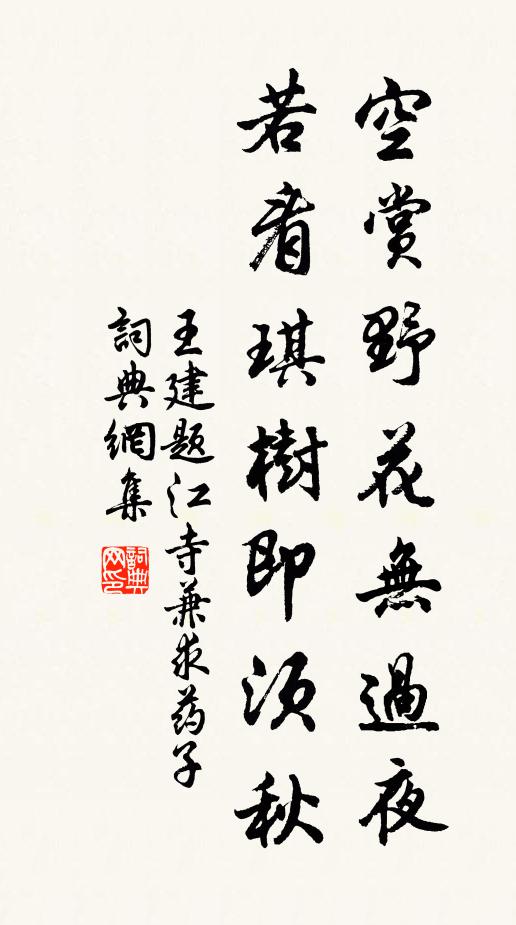 空賞野花無過夜
若看琪樹即須秋
王建題江寺兼求药子
詞典網集
詞典网印